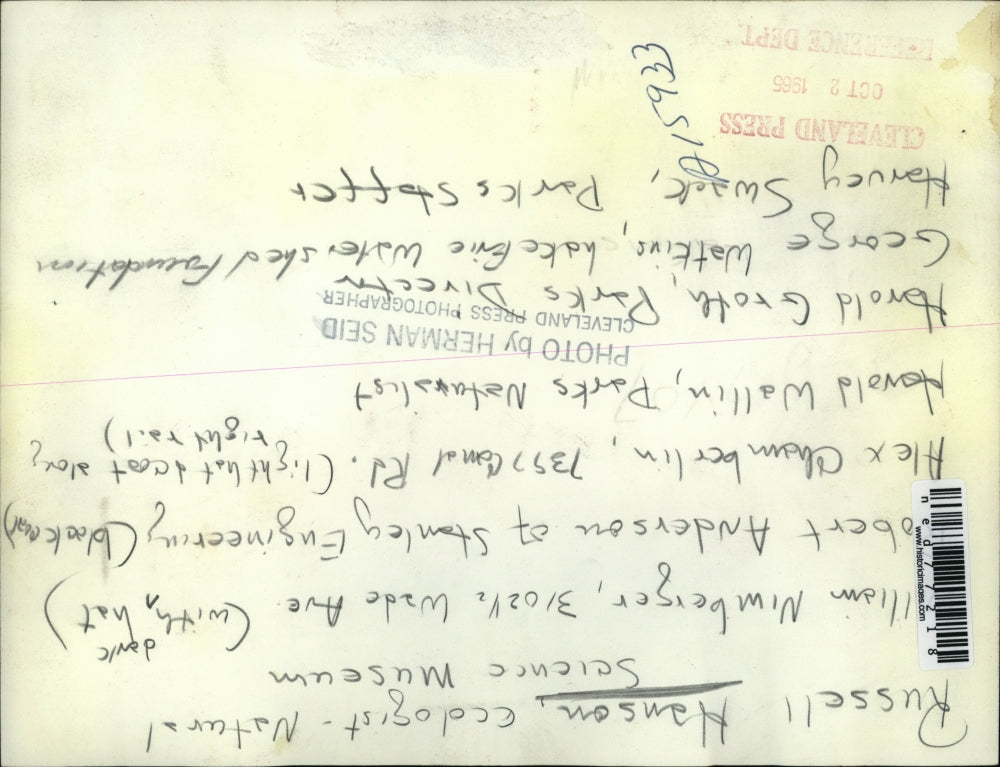 Russell Hanson, ecologist - Natural
Science Museum
William Nimberger, 3102 1/2 Wade Ave. (with dark hat)
Robert Anderson of Stanley Engineering (dark coat)
Alex Chamberlin, 7357 Canal Rd. (light hat & coat along
right rail)
Harold Wallin, Parks Naturalist
PHOTO by HERMAN SEID
CLEVELAND PRESS PHOTOGRAPHER
Harold Groth, Parks Director
George Watkins, Lake Erie Watershed Foundation
Harvey Swack, Parks staffer
CLEVELAND PRESS
OCT 2 1965
REFERENCE DEPT.
15933
www.historicimages.com
ned77218